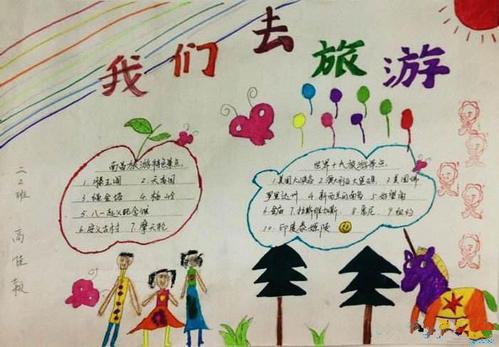 我们去旅游
南昌旅游特色景点
1. 滕王阁 2. 天香园
3. 绳金塔 4. 梅岭
5. 八一起义纪念馆
6. 安义古村 7. 摩天轮
世界十大旅游景点
1. 美国大峡谷 2. 澳大利亚大堡礁 3. 美国佛
罗里达州 4. 新西兰南岛 5. 好望角
6. 金庙 7. 拉斯维加斯 8. 悉尼 9. 纽约
10. 印度泰姬陵
二2班
高